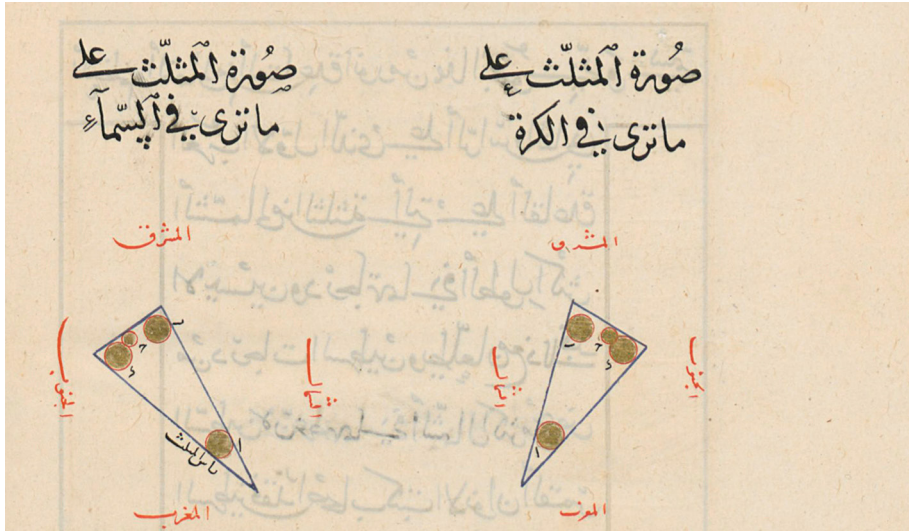 صورة المثلث على
ما ترى في الكرة
صورة المثلث على
ما ترى في السماء
المشرق
الجنوب
الشمال
المغرب
ا
ب
ج
د
المشرق
الجنوب
الشمال
المغرب
ا
ب
ج
د
راس المثلث